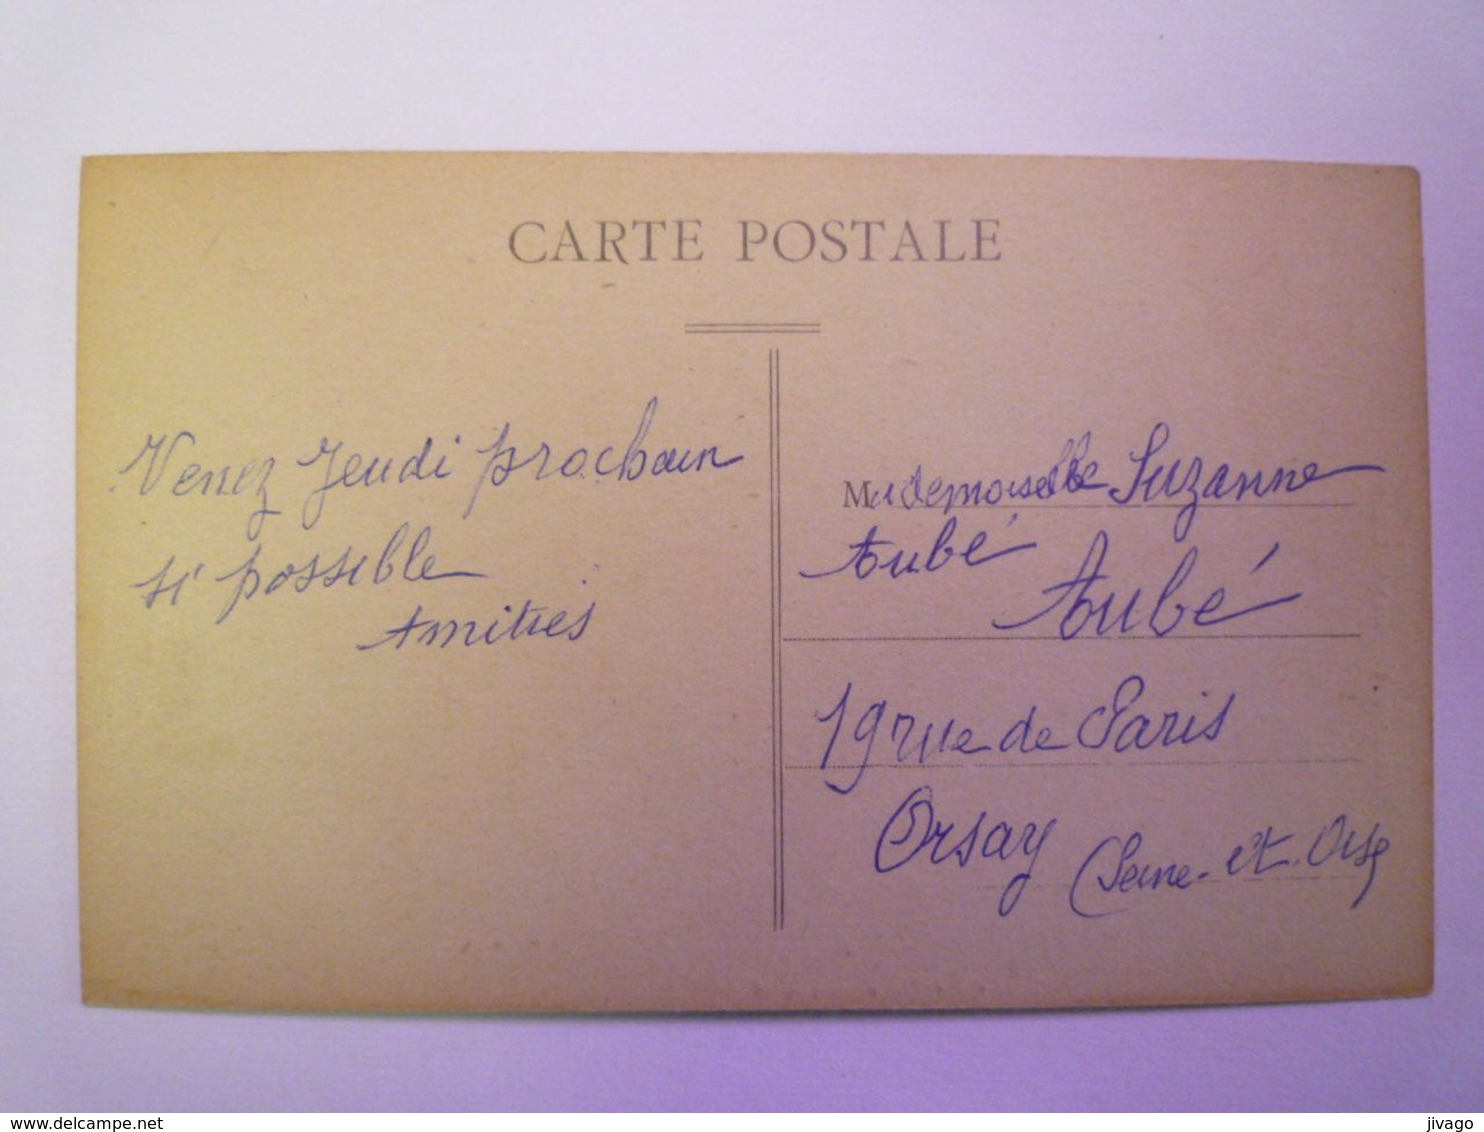 CARTE POSTALE
Venez Jeudi prochain
si possible
Amitiés
Mademoiselle Suzanne
Aubé
Aubé
19 rue de Paris
Orsay (Seine-et-Oise)
delcampe.net
jivago